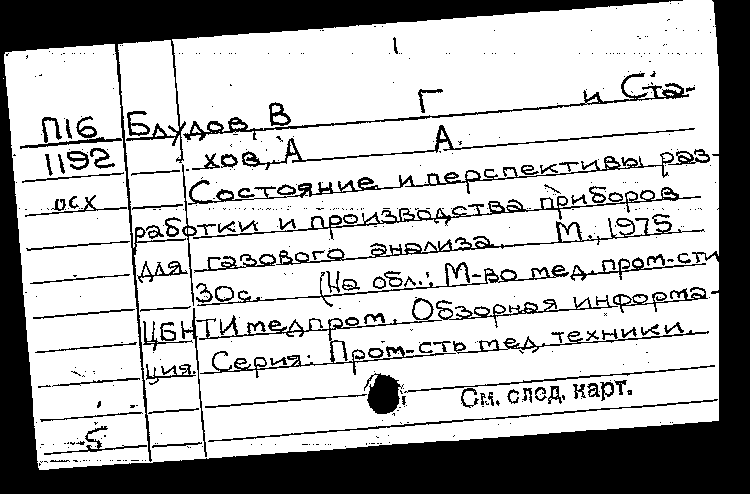 1
П16 Блудов, В Г и Ста-
1192 хов, А А.
осх Состояние и перспективы раз-
работки и производства приборов
для газового анализа. М., 1975.
30с. (На обл.: М-во мед. пром-сти
ЦБНТИ медпром. Обзорная информа-
ция. Серия: Пром-сть мед. техники.
См. след. карт.
5